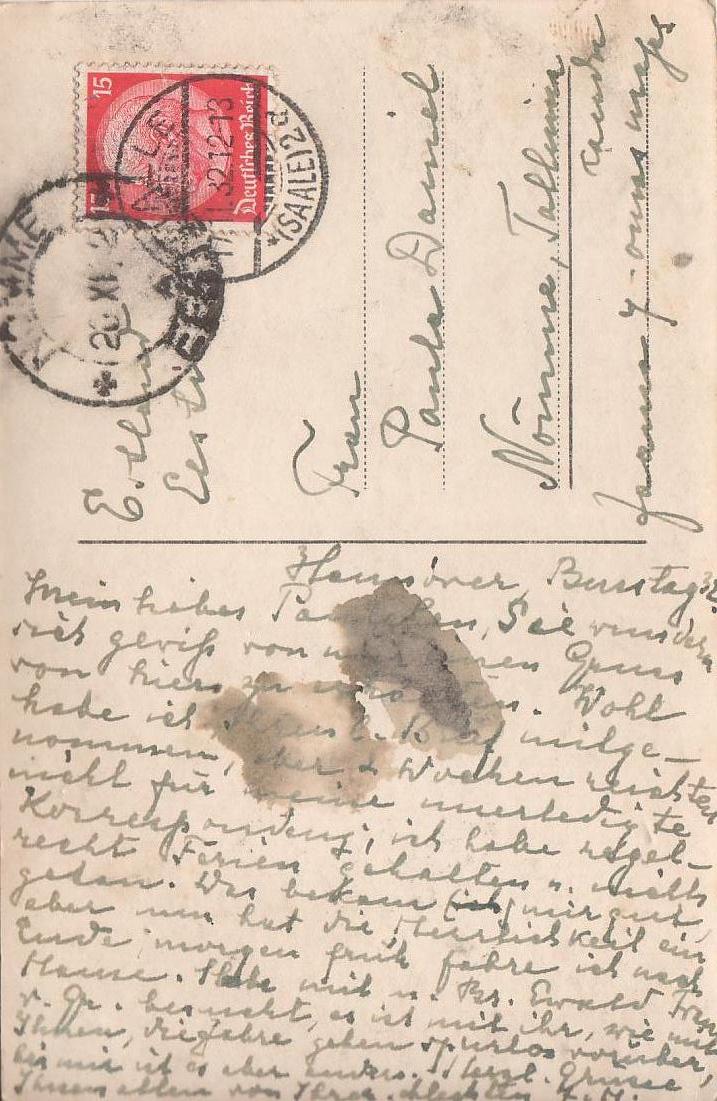 15
Deutsches Reich
(SAALE) 2d
32.12-13
NÕMME
EESTI
Estland
Eesti
Frau
Paula Daniel
Nõmme, Tallinna
Hannover, Busstag 32
Mein liebes, Sie wundern
sich gewiß von mir einen Gruss
von hier zu. Wohl
habe ich Ihren l. Brief mitge-
nommen, aber 2 Wochen reichten
nicht für meine unerledigte
Korrespondenz; ich habe regel-
recht Ferien gehalten u. nichts
getan. Das bekam (ich) mir gut,
aber nun hat die Herrlichkeit ein
Ende, morgen früh fahre ich nach
Hause. Habe mit m. Br. Ewald Frau
v. Gr. besucht, es ist mit ihr, wie mit
Ihnen, die Jahre gehen spurlos vorüber,
bei mir ist es aber anders. Herzl. Grüsse
Ihnen allen von Ihrer